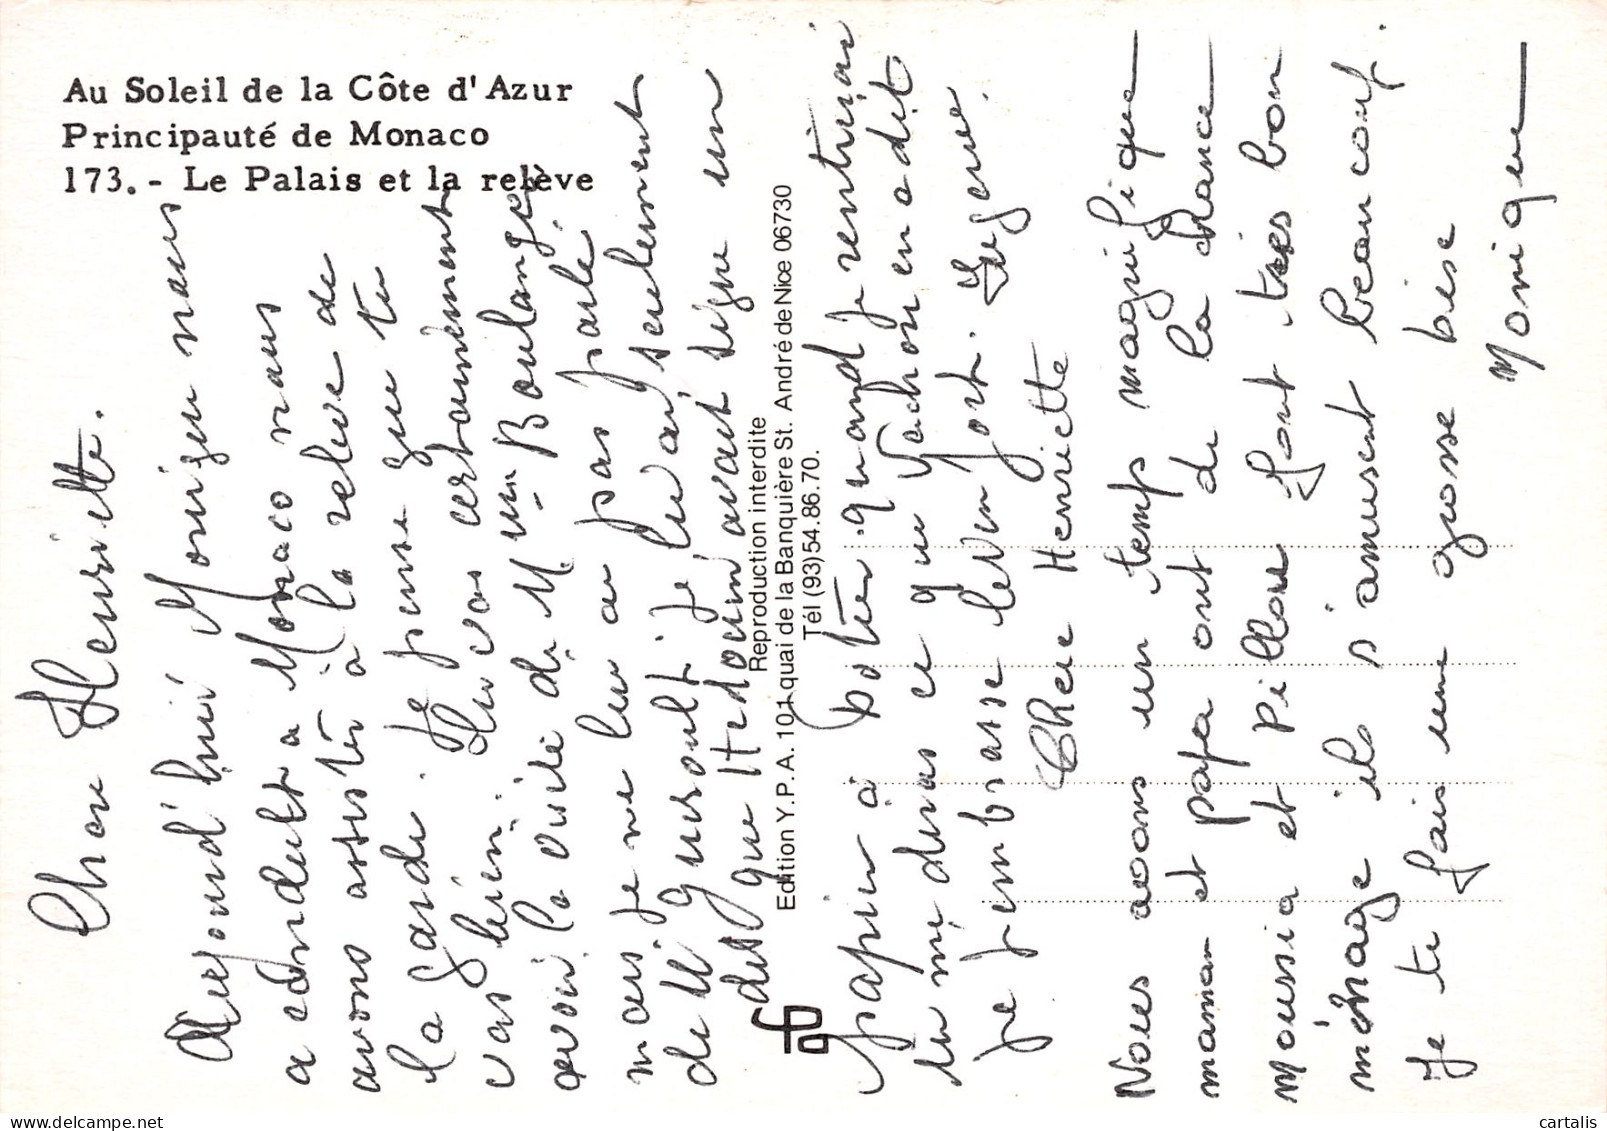 Au Soleil de la Côte d'Azur
Principauté de Monaco
173. - Le Palais et la relève
Chère Henriette.
Aujourd'hui Monique nous
a conduit à Monaco nous
avons assisté à la relève de
la garde. Je pense que tu
vas bien. tu vas certainement
avoir la visite de Mme Boulanger
mais je ne lui ai pas parlé
de M. je lui ai seulement
dit que
papier à quand je rentrerai
tu me diras ce qu'en a dit
je t'embrasse bien fort.
Chère Henriette
Nous avons un temps magnifique
maman et papa ont de la chance
Moussia et Pillou font très bon
ménage ils s'amusent beaucoup.
Je te fais une grosse bise
Monique
Reproduction interdite
Edition Y.P.A. 101 quai de la Banquière St. André de Nice 06730
Tél (93) 54.86.70.
cartalis